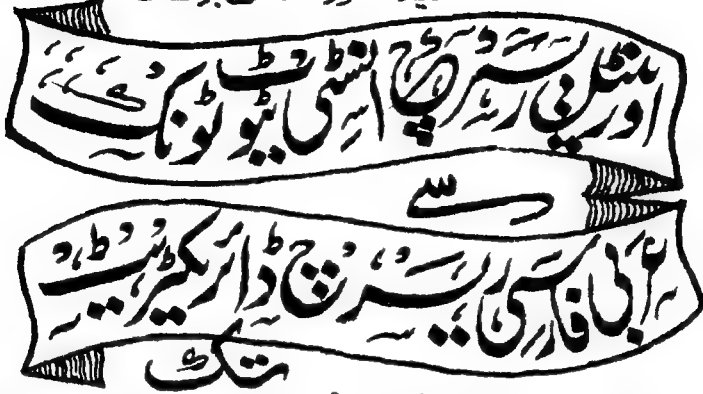 اورینٹل ریسرچ انسٹی ٹیوٹ ٹونک
سے
عربی فارسی ریسرچ ڈائریکٹریٹ
تک